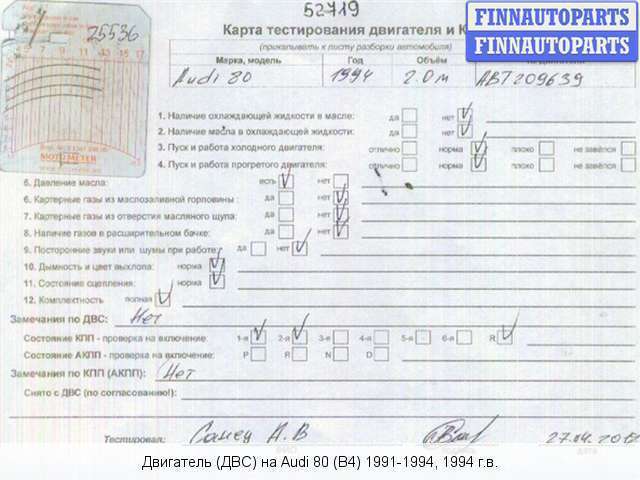 52719
FINNAUTOPARTS
FINNAUTOPARTS
25536
Карта тестирования двигателя и К
(прикалывать к листу разборки автомобиля)
Марка, модель Год Объём
Audi 80 1994 2.0м АВТ209639
1. Наличие охлаждающей жидкости в масле: да нет
2. Наличие масла в охлаждающей жидкости: да нет
3. Пуск и работа холодного двигателя: отлично норма плохо не завёлся
4. Пуск и работа прогретого двигателя: отлично норма плохо не завёлся
MOTOMETER
5. Давление масла: есть нет
6. Картерные газы из маслозаливной горловины : да нет
7. Картерные газы из отверстия масляного щупа: да нет
8. Наличие газов в расширительном бачке: да нет
9. Посторонние звуки или шумы при работе: да нет
10. Дымность и цвет выхлопа: норма
11. Состояние сцепления: норма
12. Комплектность полная
Замечания по ДВС: Нет
Состояние КПП - проверка на включение: 1-я 2-я 3-я 4-я 5-я 6-я R
Состояние АКПП - проверка на включение: P R N D
Замечания по КПП (АКПП): Нет
Снято с ДВС (по согласованию!):
Тестировал: А.В
Двигатель (ДВС) на Audi 80 (B4) 1991-1994, 1994 г.в.